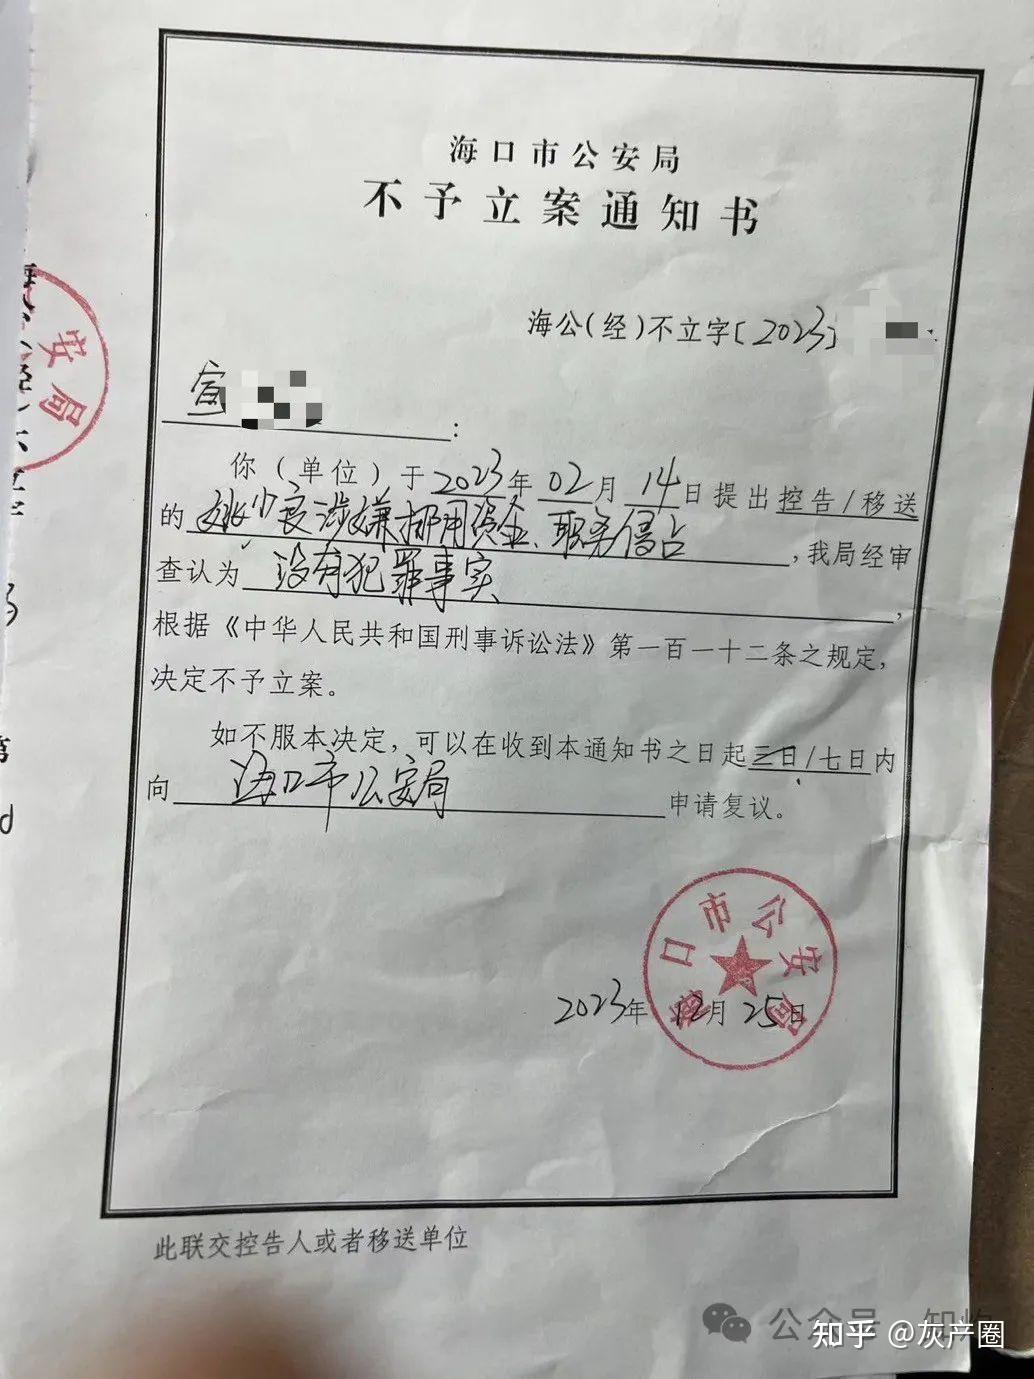 海口市公安局
不予立案通知书
海公(经)不立字[2023]
宣
:
你(单位)于2023年02月14日提出控告/移送
的姚少良涉嫌挪用资金、职务侵占,我局经审
查认为没有犯罪事实,
根据《中华人民共和国刑事诉讼法》第一百一十二条之规定,
决定不予立案。
如不服本决定,可以在收到本通知书之日起三日/七日内
向海口市公安局申请复议。
海口市公安局
2023年12月25日
此联交控告人或者移送单位
安局
第
公众号
知乎 @灰产圈